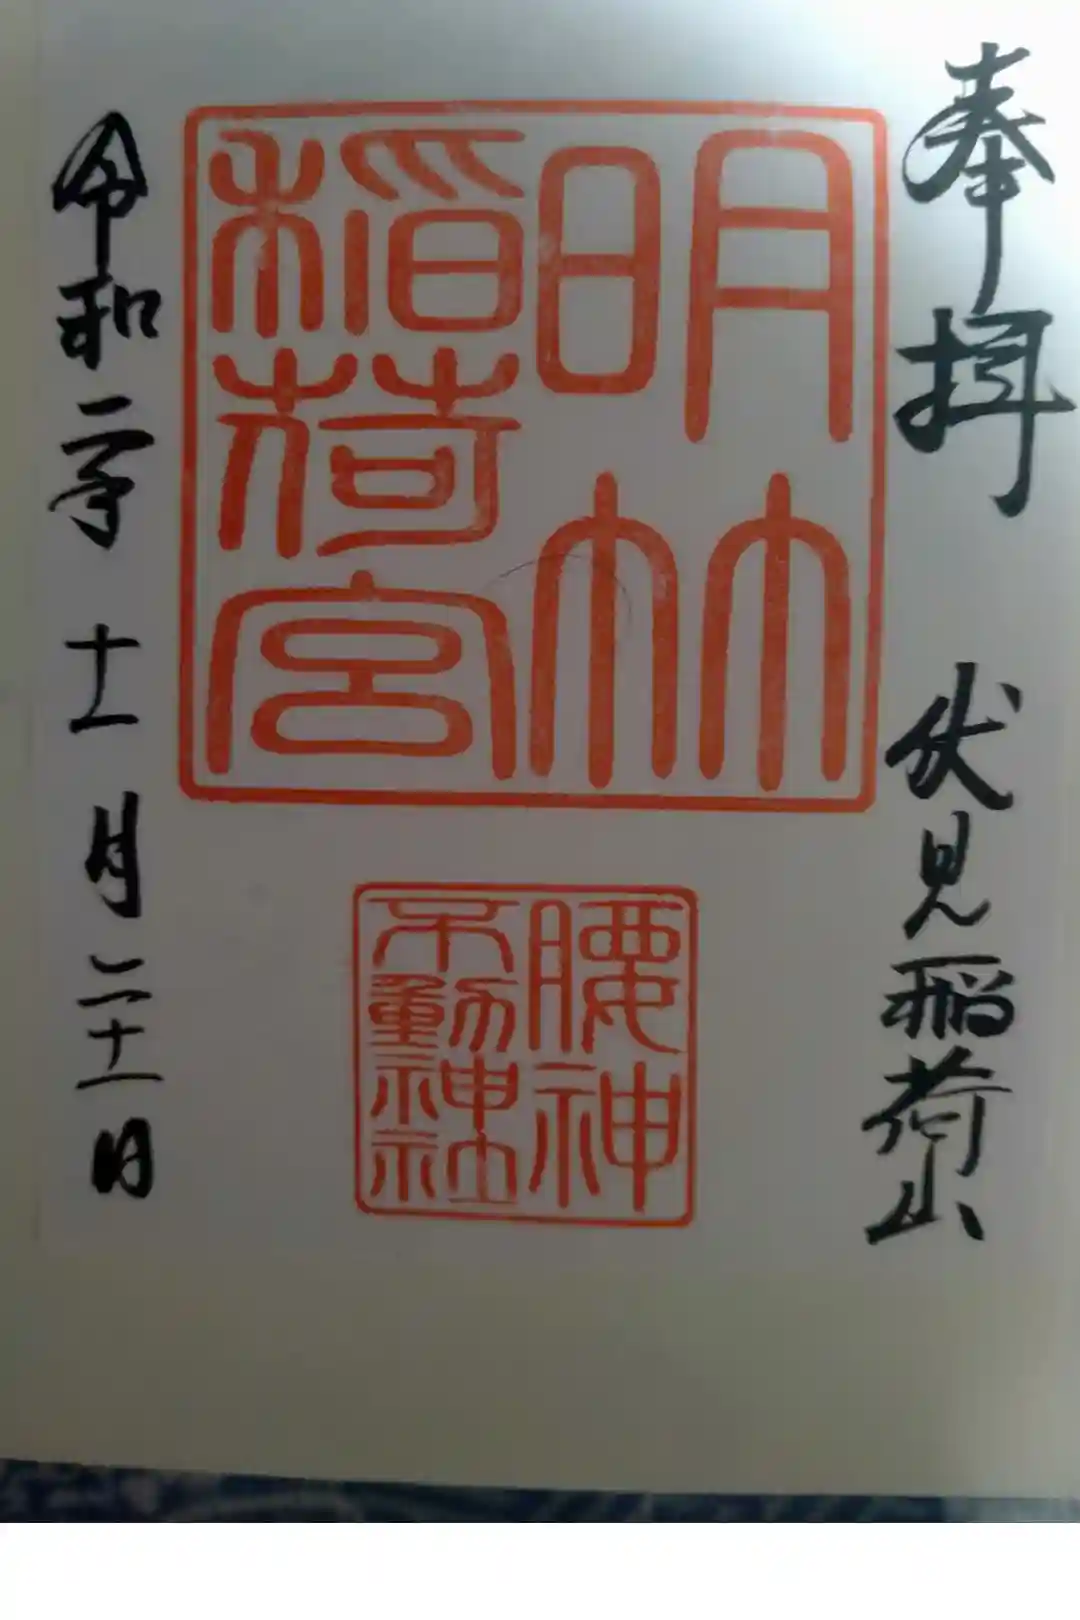 奉拝 伏見稲荷山
明竹
稲荷宮
腰神
不動神社
令和二年 十一月二十一日